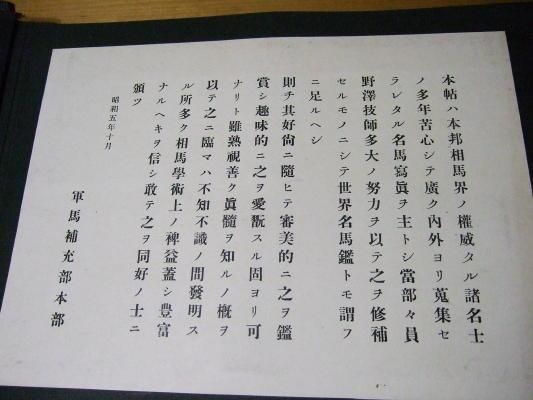 本帖ハ本邦相馬界ノ權威タル諸名士
ノ多年苦心シテ廣ク內外ヨリ蒐集セ
ラレタル名馬寫眞ヲ主トシ當部々員
野澤技師多大ノ努力ヲ以テ之ヲ修補
セルモノニシテ世界名馬鑑トモ謂フ
ニ足ルヘシ
則チ其好尙ニ隨ヒテ審美的ニ之ヲ鑑
賞シ趣味的ニ之ヲ愛翫スル固ヨリ可
ナリト雖熟視善ク眞髓ヲ知ルノ槪ヲ
以テ之ニ臨マハ不知不識ノ間發明ス
ル所多ク相馬學術上ノ裨益蓋シ豊富
ナルヘキヲ信シ敢テ之ヲ同好ノ士ニ
頒ツ
昭和五年十月
軍馬補充部本部